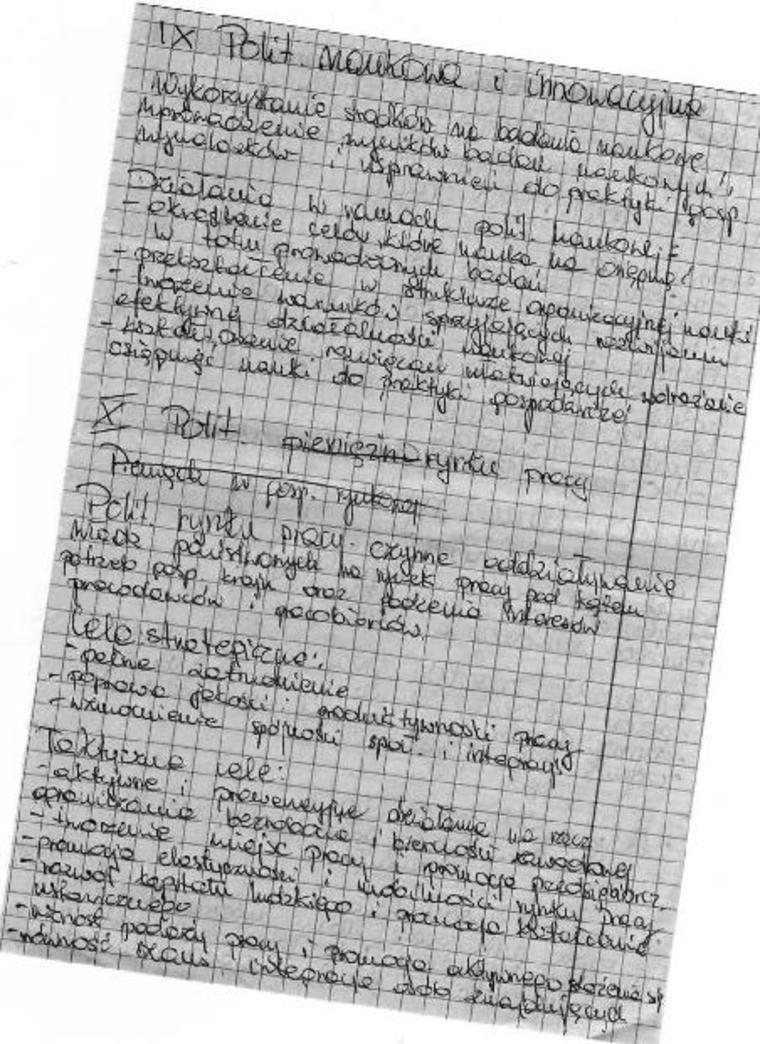 IX Polit. naukowa i innowacyjna
Wykorzystanie środków na badania naukowe,
wprowadzenie wyników badań naukowych,
wynalazków i usprawnień do praktyki gosp
Działania w ramach polit. naukowej:
- określanie celów, które nauka ma osiągnąć
w toku prowadzonych badań
- przekształcenie w strukturze organizacyjnej nauki
- tworzenie warunków sprzyjających rozwijaniu
efektywnej działalności naukowej
- rozwiązań ułatwiających wdrażanie
osiągnięć nauki do praktyki gospodarczej
X Polit. pieniężna rynku pracy
Pieniądz w gosp. rynkowej
Polit. rynku pracy - czynne oddziaływanie
władz państwowych na rynek pracy pod kątem
potrzeb gosp. kraju oraz interesów
pracodawców i pracobiorców.
Cele strategiczne:
- pełne zatrudnienie
- poprawa jakości i produktywności pracy
- wzmocnienie spójności społ. i integracji
Taktyczne cele:
- aktywne i prewencyjne działania na rzecz
ograniczania bezrobocia i bierności zawodowej
- tworzenie miejsc pracy i promocja przedsiębiorcz.
- promocja elastyczności i mobilności rynku pracy
- rozwój kapitału ludzkiego i promocja kształcenia
ustawicznego
- wzrost podaży pracy i promocja aktywnego starzenia się
- równość szans, integracja osób znajdujących